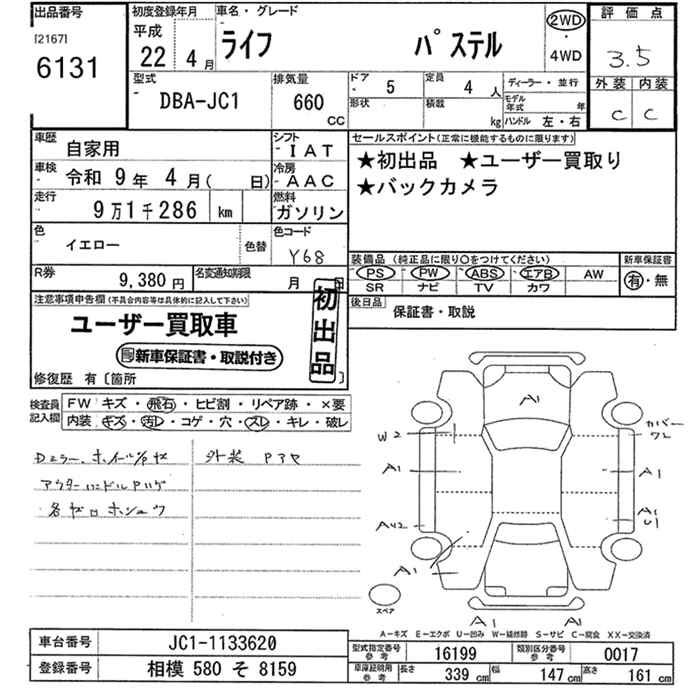 出品番号
[2167]
6131
初度登録年月
平成
22年 4月
車名・グレード
ライフ パステル
2WD
・
4WD
評価点
3.5
外装 内装
C C
型式
DBA-JC1
排気量
660 CC
ドア 5
形状
定員 4人
積載 kg
ディーラー・並行
モデル年式 年
ハンドル 左・右
車歴 自家用
シフト IAT
車検 令和 9年 4月( 日)
冷房 AAC
走行 9万1千286 km
燃料 ガソリン
色 イエロー 色替
色コード Y68
R券 9,380円
名変通知期限 月 日
セールスポイント(正常に機能するものに限ります)
★初出品 ★ユーザー買取り
★バックカメラ
装備品 (純正品に限り○をつけてください)
PS PW ABS エアB AW
SR ナビ TV カワ
新車保証書
有・無
後日品 保証書・取説
注意事項申告欄(不具合内容等は具体的に記入して下さい)
ユーザー買取車
新車保証書・取説付き
初出品
修復歴 有〔箇所 〕
検査員記入欄
FW キズ・飛石・ヒビ割・リペア跡・×要
内装 キズ・汚レ・コゲ・穴・スレ・キレ・破レ
Dミラー、ホイルP ヤセ
外装 P
アウターハンドルPハゲ
A1
W2
A1
AU2
A1
カバー
ワレ
A1
A1
U1
A1
A1
スペア
A-キズ E-エクボ U-凹み W-補修跡 S-サビ C-腐食 XX-交換済
車台番号 JC1-1133620
登録番号 相模 580 そ 8159
型式指定番号 参考 16199
類別区分番号 参考 0017
車庫証明用 参考 長さ 339 cm 幅 147 cm 高さ 161 cm